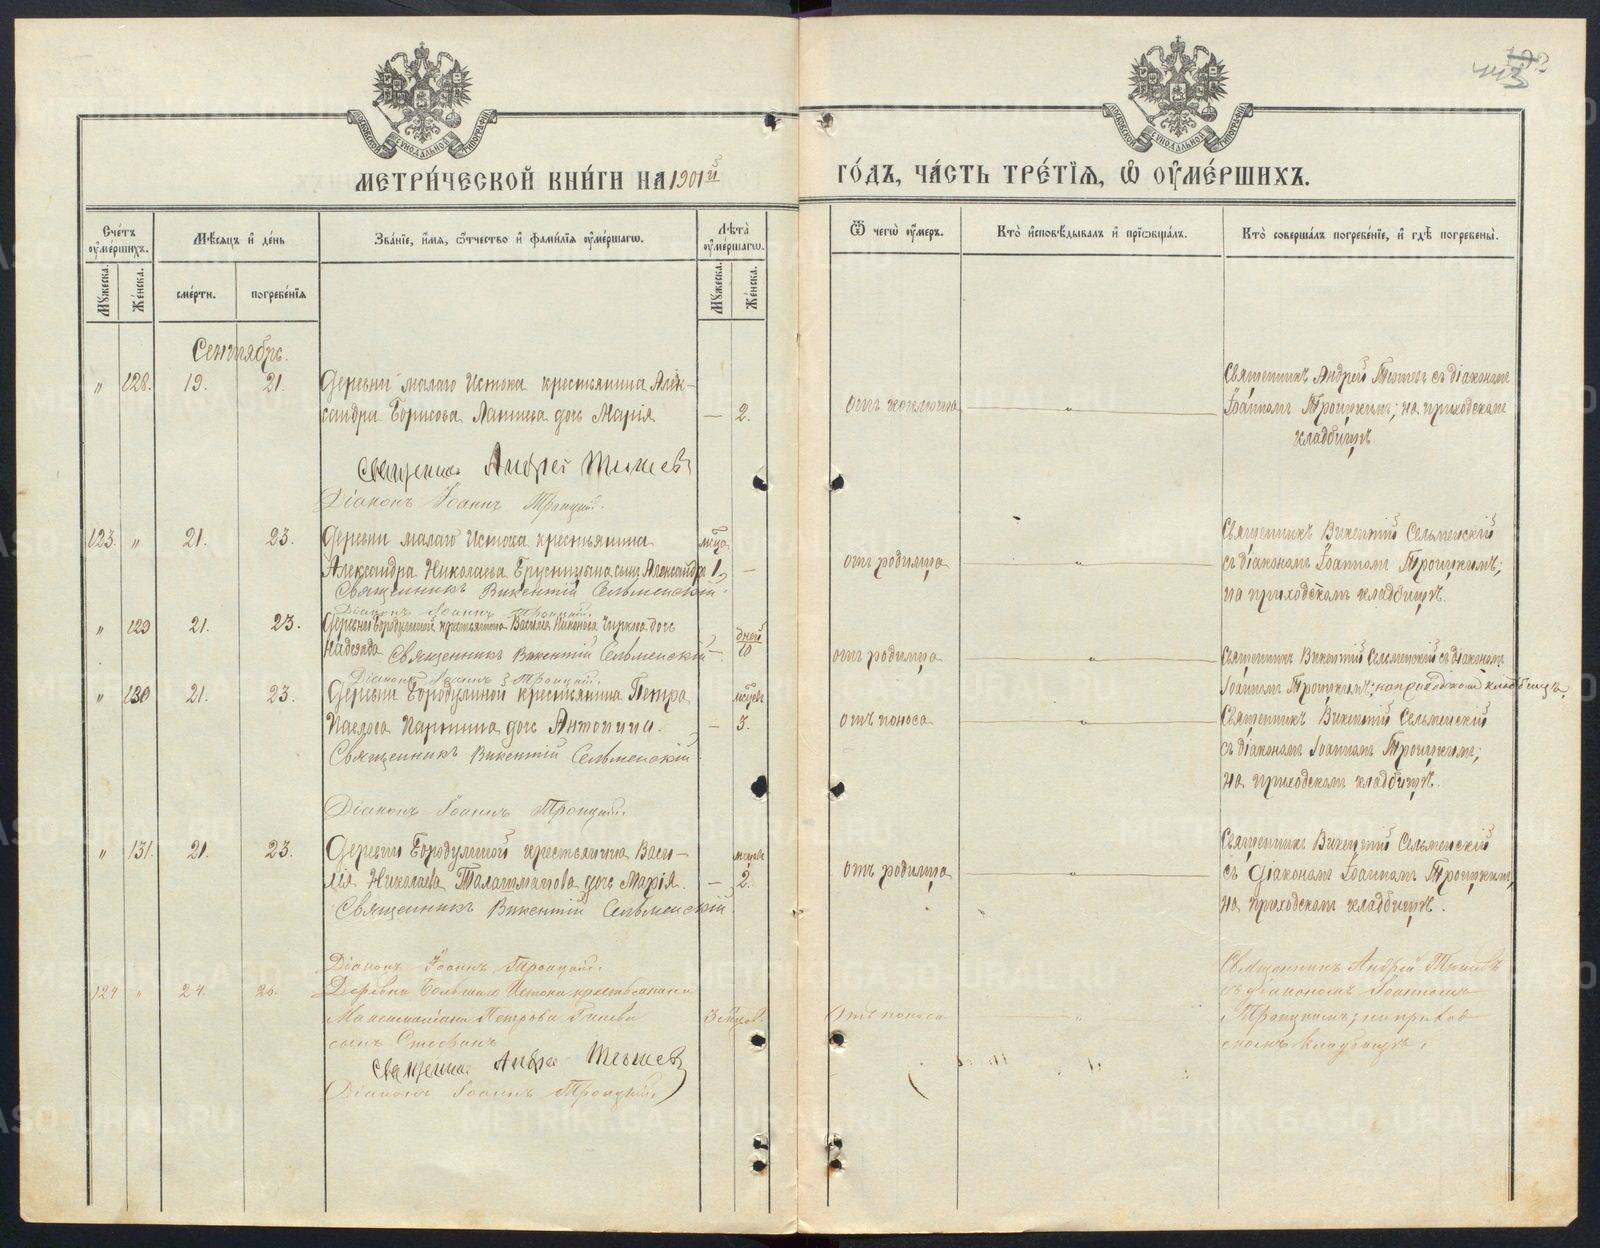 МЕТРИ́ЧЕСКОЙ КНИ́ГИ НА 1901й
ГО́ДЪ, ЧА́СТЬ ТРЕ́ТЇѦ, Ѿ ОУМЕ́РШИХЪ.
Сче́тъ оуме́ршихъ.
Мꙋжеска.
Же́нска.
Мѣ́сѧцъ и де́нь
сме́рти.
погребе́нїѧ
Зва́нїе, и́мѧ, ѻ́тчество и фами́лїѧ оуме́ршагѡ.
Лѣ́та оуме́ршагѡ.
Мꙋжеска.
Же́нска.
Ѿ чегѡ̀ оу́меръ.
Кто̀ исповѣ́дывалъ и прїѡбща́лъ.
Кто̀ соверша́лъ погребе́нїе, и гдѣ̀ погребены̀.
Сентябрь.
" 128. 19. 21. Деревни малаго Истока крестьянина Алек-
сандра Борисова дочь Марія — 2.
Священникъ Андрей
Діаконъ Іоаннъ Троицкій.
Священникъ Андрей съ діакономъ
Іоанномъ Троицкимъ; на приходскомъ
кладбищѣ.
123. " 21. 23. Деревни малаго Истока крестьянина мѣсяца
Александра Николаева Брусницына сынъ Александръ 1, —
Священникъ Викентій Сельменскій.
Діаконъ Іоаннъ Троицкій.
отъ родимца
Священникъ Викентій Сельменскій
съ діакономъ Іоанномъ Троицкимъ;
на приходскомъ кладбищѣ.
" 129 21. 23. Деревни Бородулиной крестьянина Василія дочь дней
Надежда Священникъ Викентій Сельменскій — 10
Діаконъ Іоаннъ Троицкій.
отъ родимца
Священникъ Викентій Сельменскій съ діакономъ
Іоанномъ Троицкимъ; на приходскомъ кладбищѣ.
" 130 21. 23. Деревни Бородулиной крестьянина Петра
Павлова дочь Антонина. — 3.
Священникъ Викентій Сельменскій
Діаконъ Іоаннъ Троицкій.
отъ поноса
Священникъ Викентій Сельменскій
съ діакономъ Іоанномъ Троицкимъ;
на приходскомъ кладбищѣ.
" 131. 21. 23. Деревни Бородулиной крестьянина Васи-
лія Николаева Талашманова дочь Марія. — 2.
Священникъ Викентій Сельменскій
Діаконъ Іоаннъ Троицкій.
отъ родимца
Священникъ Викентій Сельменскій
съ діакономъ Іоанномъ Троицкимъ,
на приходскомъ кладбищѣ.
124 " 24. 26. Деревни Большаго Истока крестьянина
Максимиліана Петрова сынъ Стефанъ
Священникъ Андрей
Діаконъ Іоаннъ Троицкій.
Отъ поноса
Священникъ Андрей
съ діакономъ Іоанномъ
Троицкимъ; на приход
скомъ кладбищѣ.
METRIKI.GASO-URAL.RU